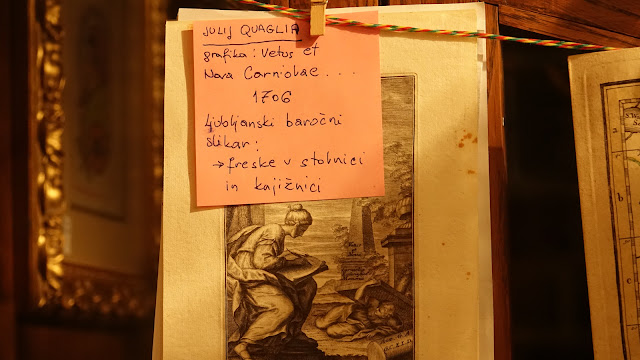 JULIJ QUAGLIA
grafika: Vetus et
Nova Carniolae...
1706
Ljubljanski baročni
slikar:
→ freske v stolnici
in knjižnici